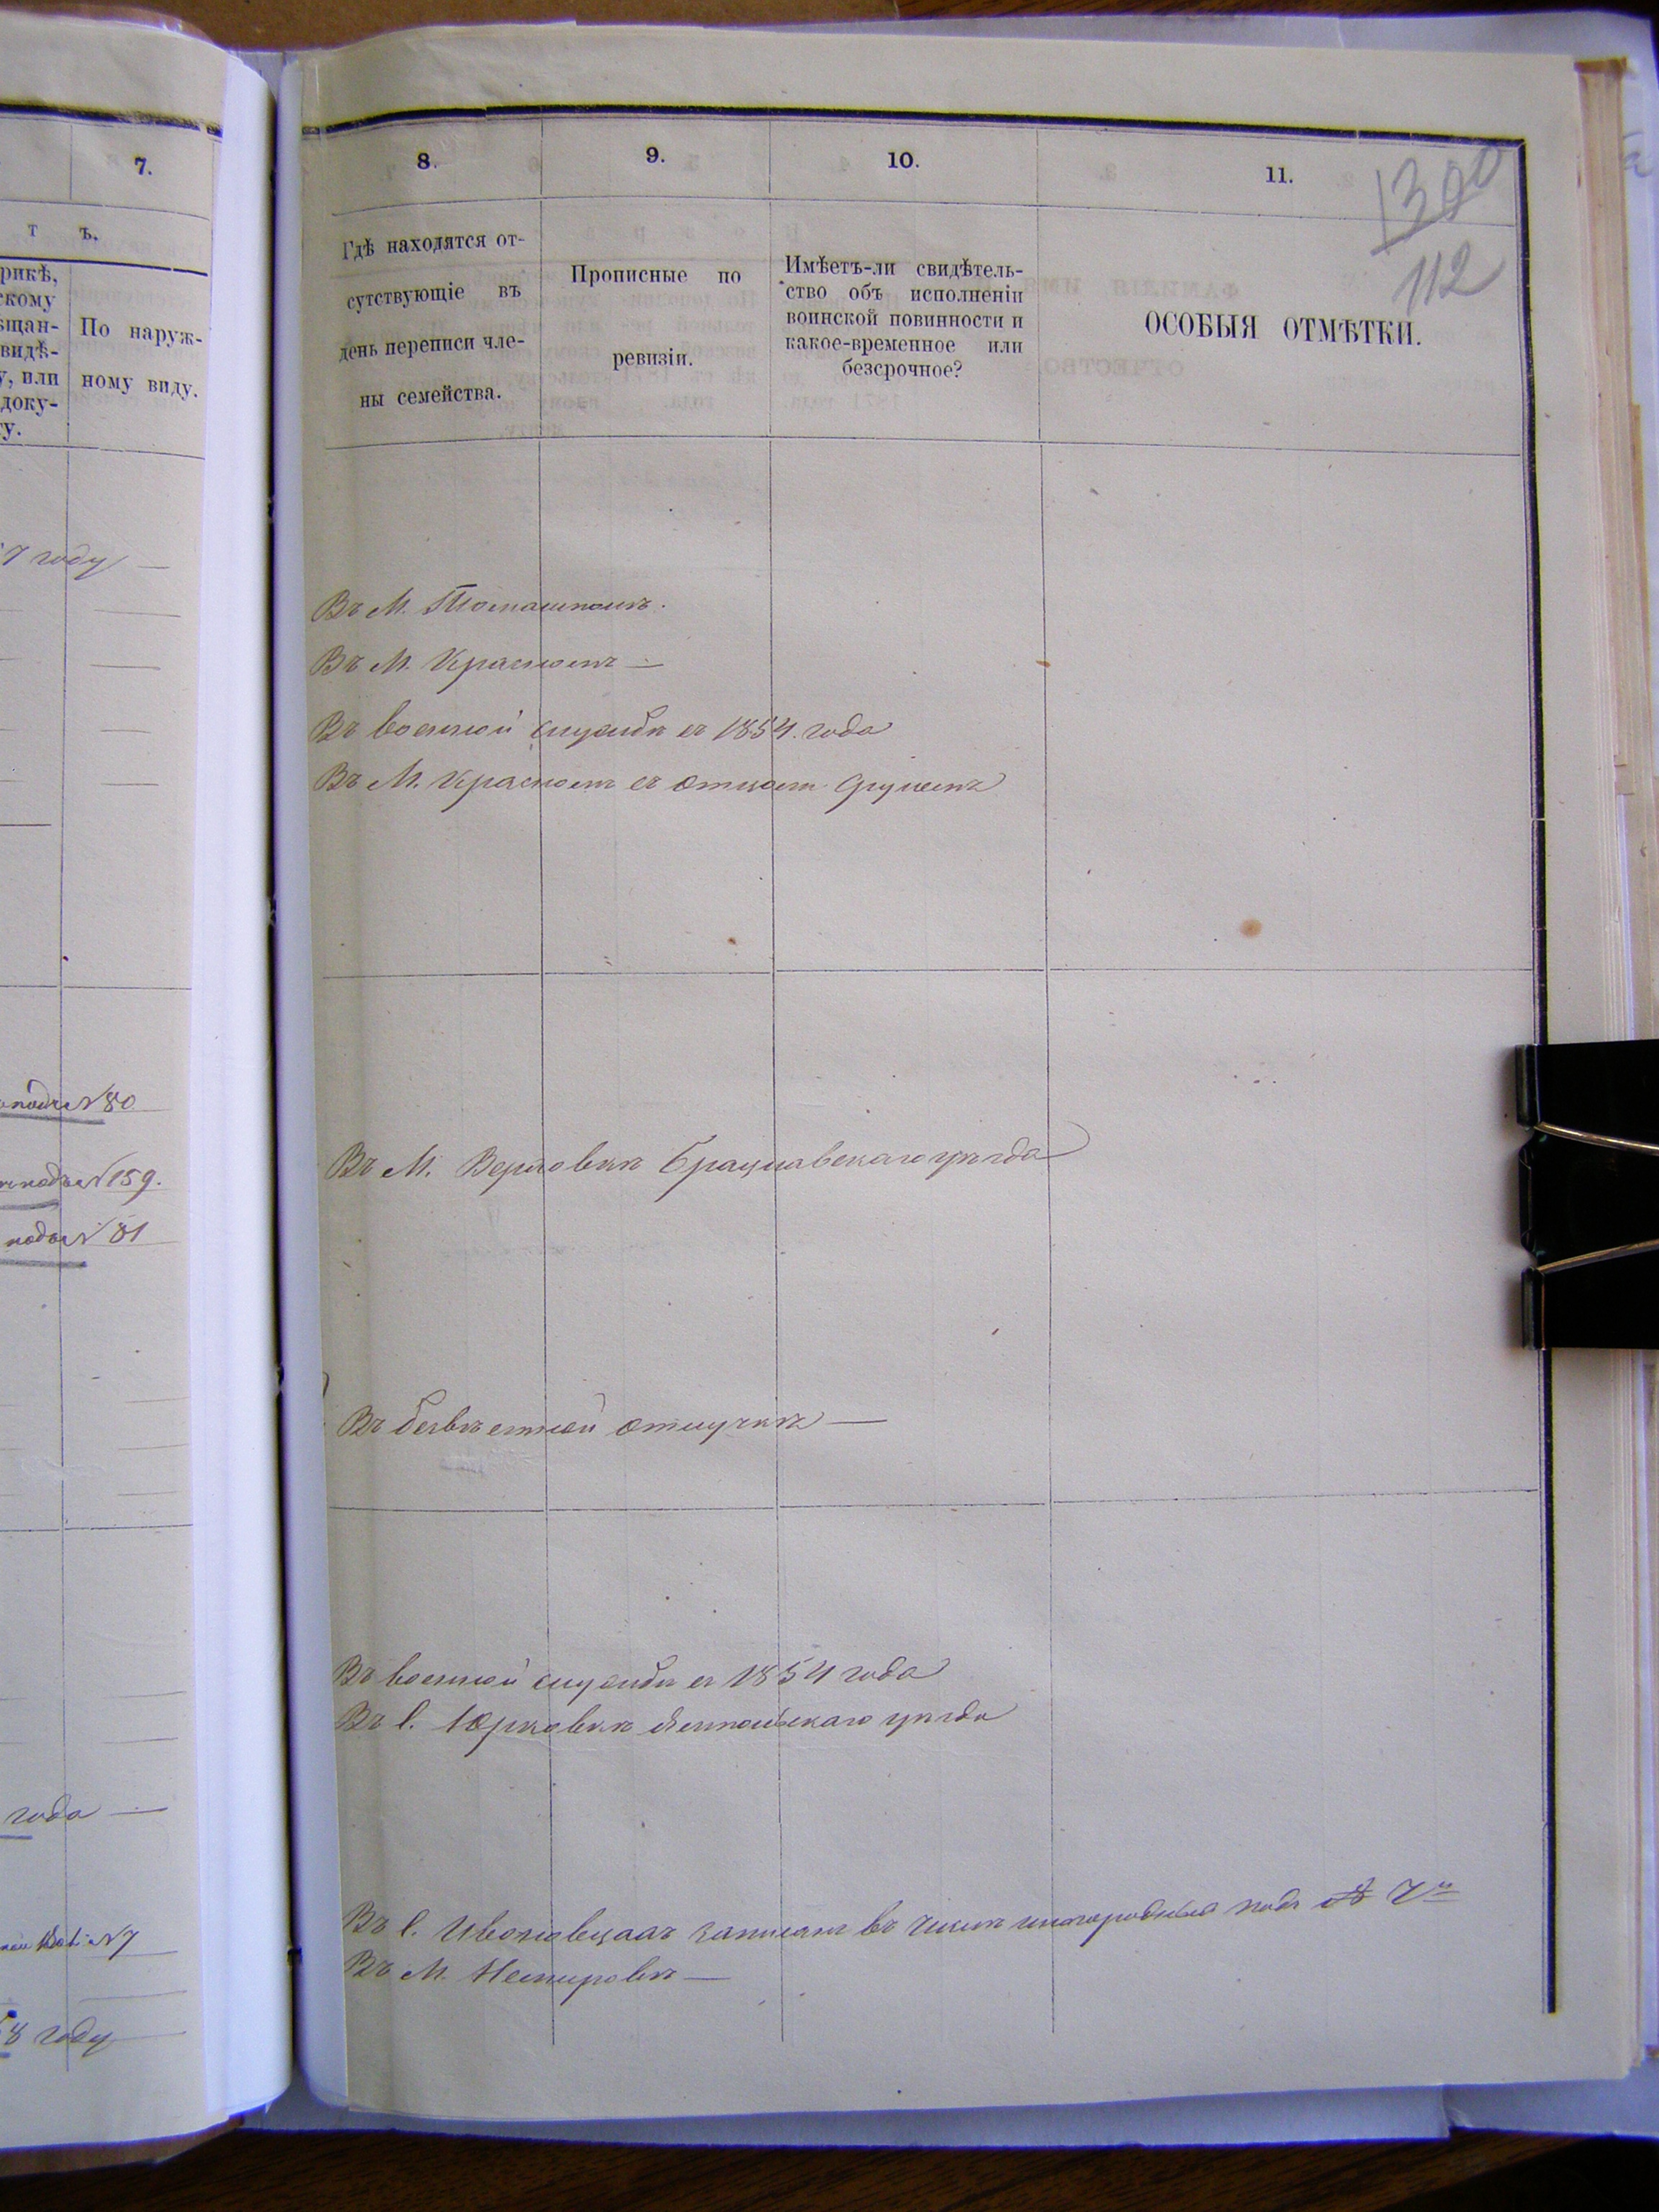 7.
т ъ.
рикѣ,
скому
ѣщан-
видѣ-
у, или
доку-
ту.
По наруж-
ному виду.
7 году —
№ 80
№ 159.
№ 81
года —
№ 7
8 году
8.
9.
10.
11.
1300
112
Гдѣ находятся от-
сутствующіе въ
день переписи чле-
ны семейства.
Прописные по
ревизіи.
Имѣетъ-ли свидѣтель-
ство объ исполненіи
воинской повинности и
какое-временное или
безсрочное?
ОСОБЫЯ ОТМѢТКИ.
Въ М. Томашполѣ.
Въ М. Красномъ —
Въ военной службѣ съ 1854. года
Въ М. Красномъ съ отцомъ
Въ М. Верховкѣ Брацлавскаго уѣзда
Въ безвѣстной отлучкѣ —
Въ военной службѣ съ 1854 года
Въ с. Юрковкѣ Ямпольскаго уѣзда
Въ с. записанъ въ числѣ иногородныхъ подъ № 7м
Въ М. Немировѣ —